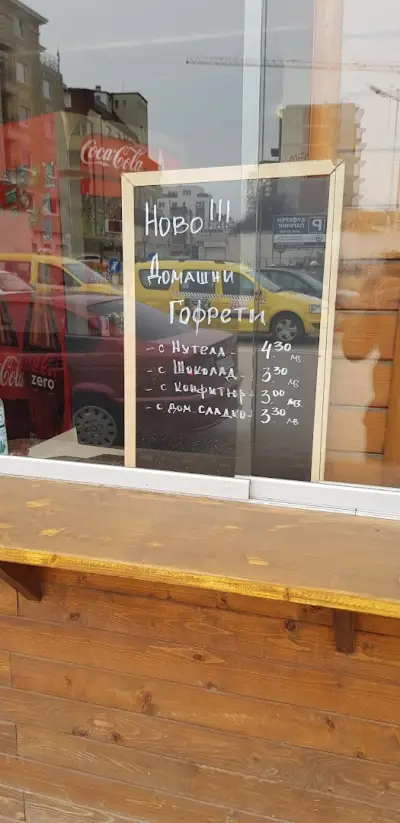 Coca-Cola
Ново!!!
Домашни
Гофрети
- с Нутела - 4.30 лв
- с Шоколад - 3.30 лв
- с Конфитюр - 3.00 лв
- с дом. сладко - 3.30 лв
Cola
zero
P